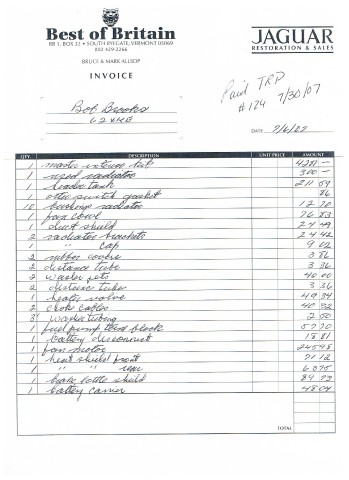 Best of Britain
RR 1, BOX 33 • SOUTH RYEGATE, VERMONT 05069
802 429-2266
BRUCE & MARK ALLSOP
INVOICE
JAGUAR
RESTORATION & SALES
Paid TRP
#124 7/30/07
Bob Brooks
DATE 7/6/07
QTY. DESCRIPTION UNIT PRICE AMOUNT
1 master interior kit 4281 —
1 used radiator 300 —
1 header tank 211 59
1 otter switch gasket 86
10 bushing radiator 12 70
1 fan cowl 76 83
1 dust shield 24 49
2 radiator brackets 24 42
1 " cap 9 02
2 rubber covers 3 86
2 distance tube 3 36
2 washer jets 40 00
2 distance tubes 3 36
1 heater valve 49 34
2 choke cables 40 32
3' washer tubing 2 50
1 fuel pump term block 57 70
1 battery disconnect 18 81
1 fan motor 245 98
1 heat shield front 71 12
1 " " rear 63 75
1 brake bottle shield 89 73
1 battery carrier 48 04
TOTAL